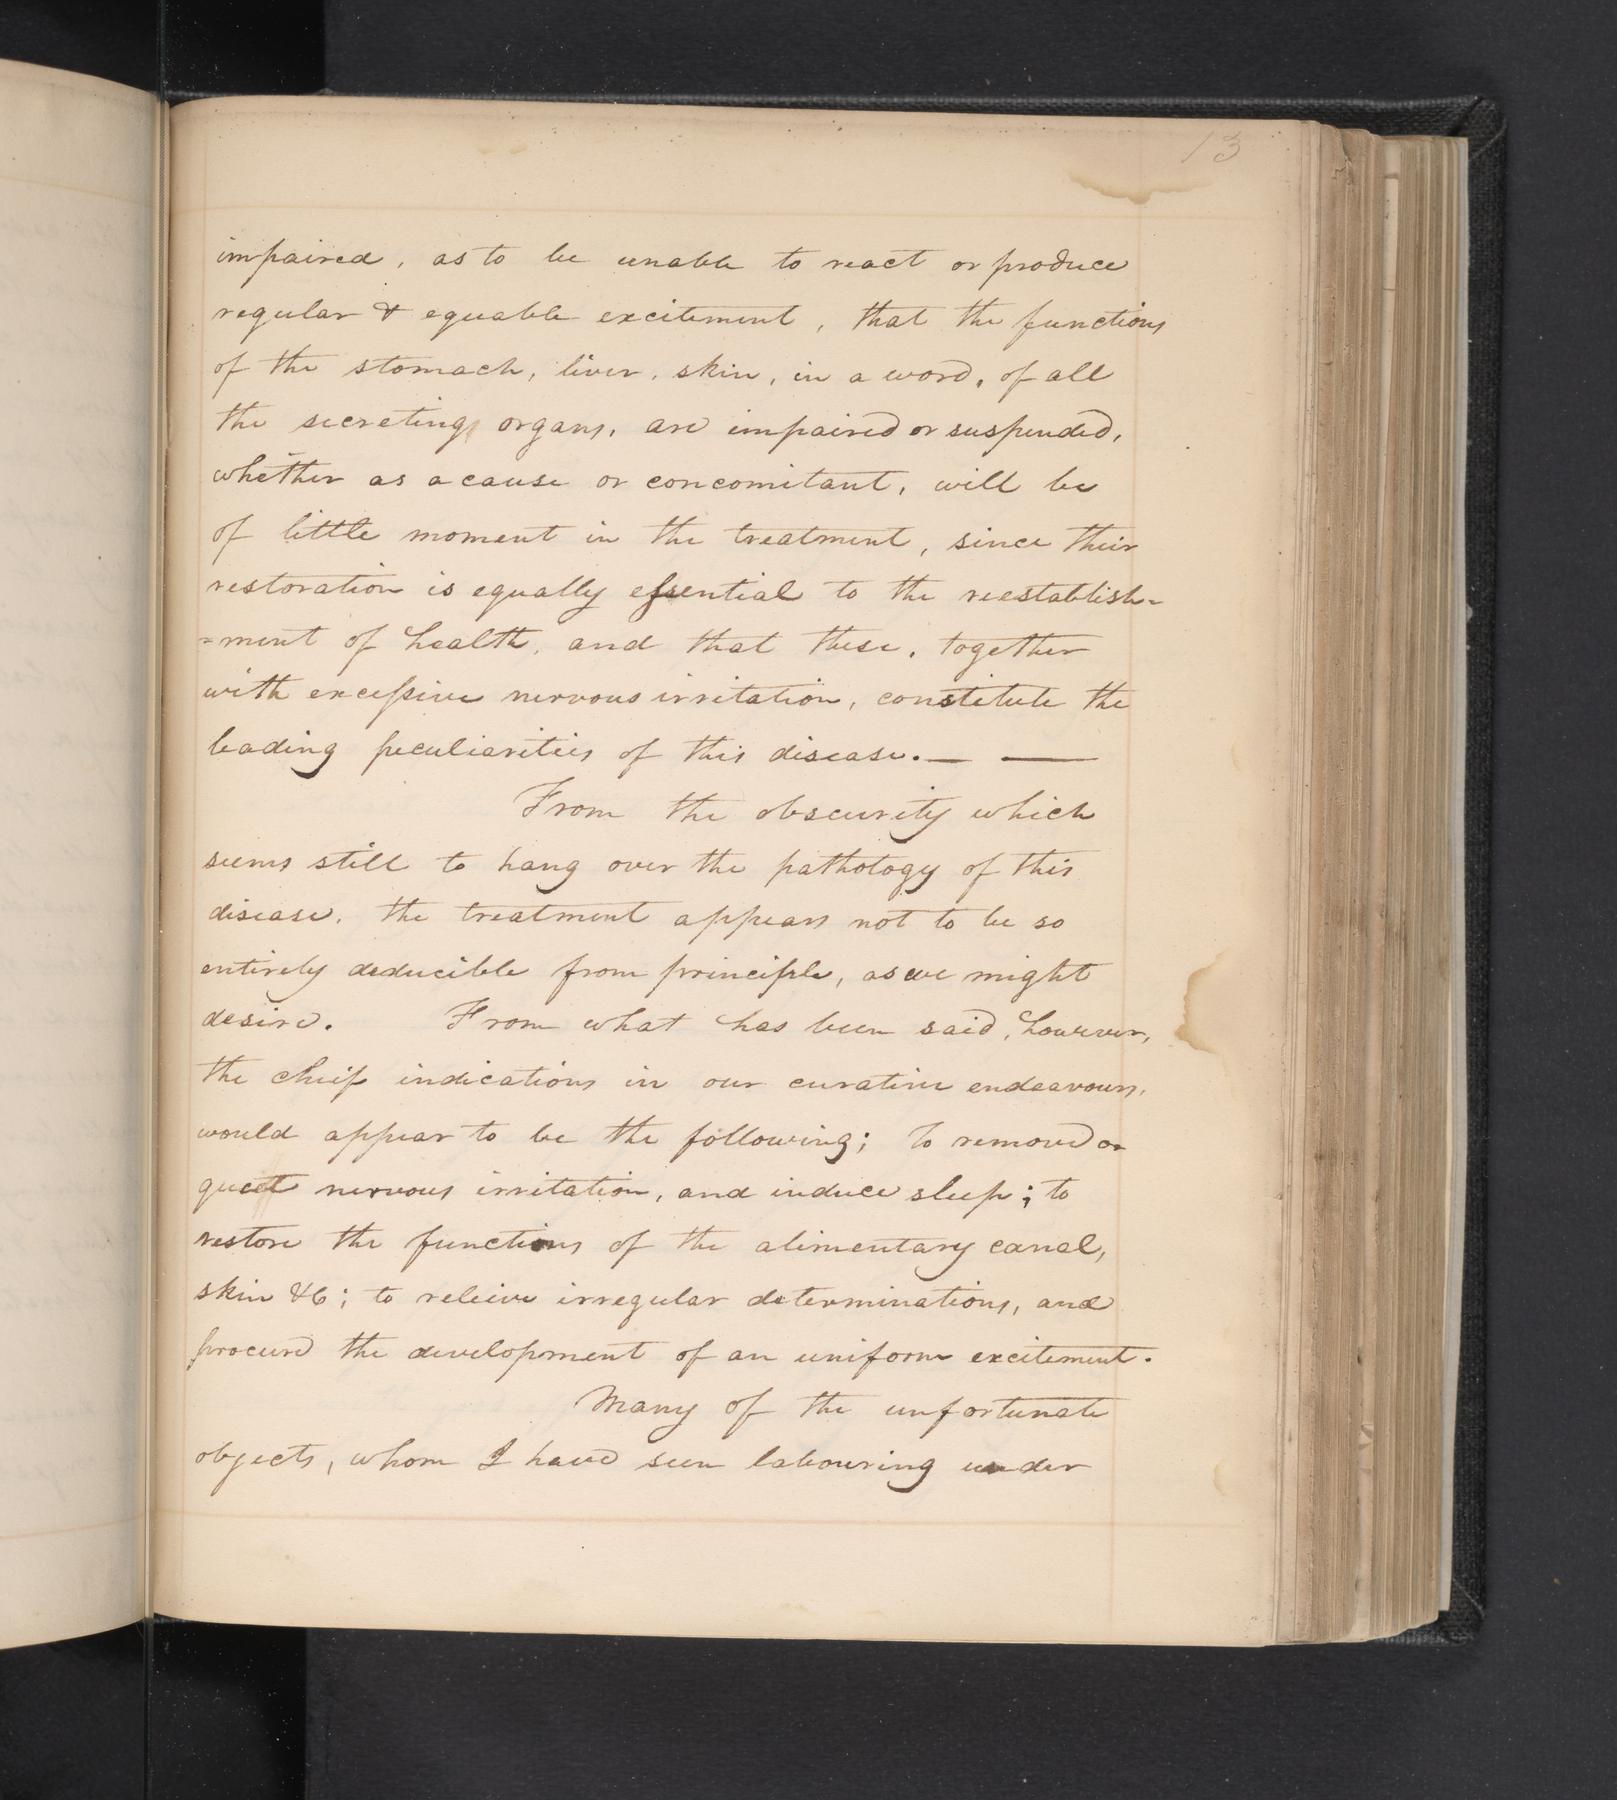 13
impaired, as to be unable to react or produce
regular & equable excitement, that the functions
of the stomach, liver, skin, in a word, of all
the secreting organs, are impaired or suspended,
whether as a cause or concomitant, will be
of little moment in the treatment, since their
restoration is equally essential to the reestablish=
=ment of health, and that these, together
with excessive nervous irritation, constitute the
leading peculiarities of this disease. — —
From the obscurity which
seems still to hang over the pathology of this
disease, the treatment appears not to be so
entirely deducible from principle, as we might
desire. From what has been said, however,
the cheif indications in our curative endeavours,
would appear to be the following; To remove or
quiet nervous irritation, and induce sleep; to
restore the functions of the alimentary canal,
skin &c; to releive irregular determinations, and
procure the development of an uniform excitement.
Many of the unfortunate
objects, whom I have seen labouring under